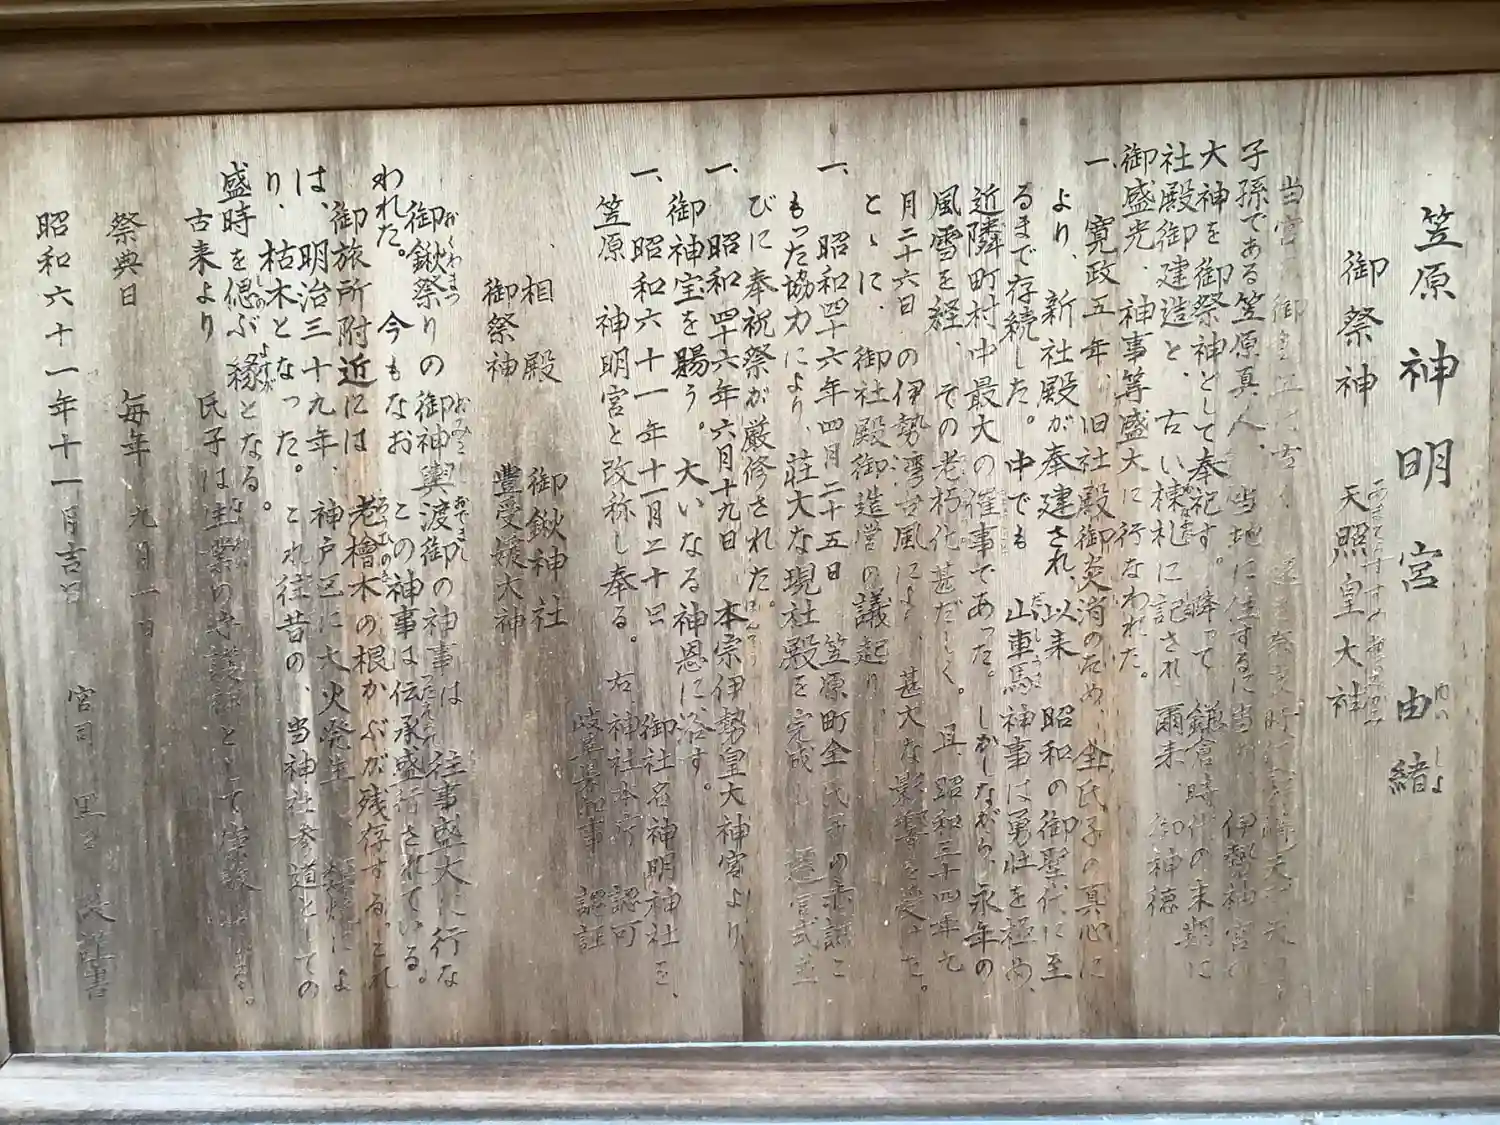 笠原神明宮由緒
ゆいしょ
御祭神 天照皇大神
当宮 御
子孫である笠原真人、当地に住するに当り、伊勢神宮の
大神を御祭神として奉祀す。降って鎌倉時代の末期に
社殿御建造と、古い棟札に記され爾来、御神徳
御盛光、神事等盛大に行なわれた。
一、寛政五年、旧社殿御炎消のため、全氏子の真心に
より、新社殿が奉建され、以来 昭和の御聖代に至
るまで存続した。中でも 山車馬神事は勇壮を極め、
近隣町村中最大の催事であった。しかしながら、永年の
風雪を経、での老朽化甚だしく。且、昭和三十四年九
月二十六日の伊勢湾台風により、甚大な影響を受けた。
とゝに、御社殿御造営の議起り
一、昭和四十六年四月二十五日 笠原町全氏子の
もった協力により、荘大な現社殿を完成し 遷宮式並
びに奉祝祭が厳修された。
一、昭和四十六年六月十九日 本宗伊勢皇大神宮より、
御神宝を賜う。大いなる神恩に浴す。
一、昭和六十一年十一月二十日 御社名神明神社を、
笠原 神明宮と改称し奉る。右、神社本庁 認可
岐阜県知事 認証
、相殿 御鍬神社
御祭神 豊受媛大神
御鍬祭りの御神輿渡御の神事は 往事盛大に行な
おくわまつ
われた。今もなお この神事は伝承盛行されている。
御旅所附近には 老檜木の根かぶが残存する。これ
は、明治三十九年、神戸区に大火発生、類焼によ
り、枯木となった。これ往昔の、当神社参道としての
盛時を偲ぶ縁となる。
しの よすが
古来より 氏子は生業の守護神として崇敬
祭典日 毎年 九月一日
昭和六十一年十一月吉日 宮司